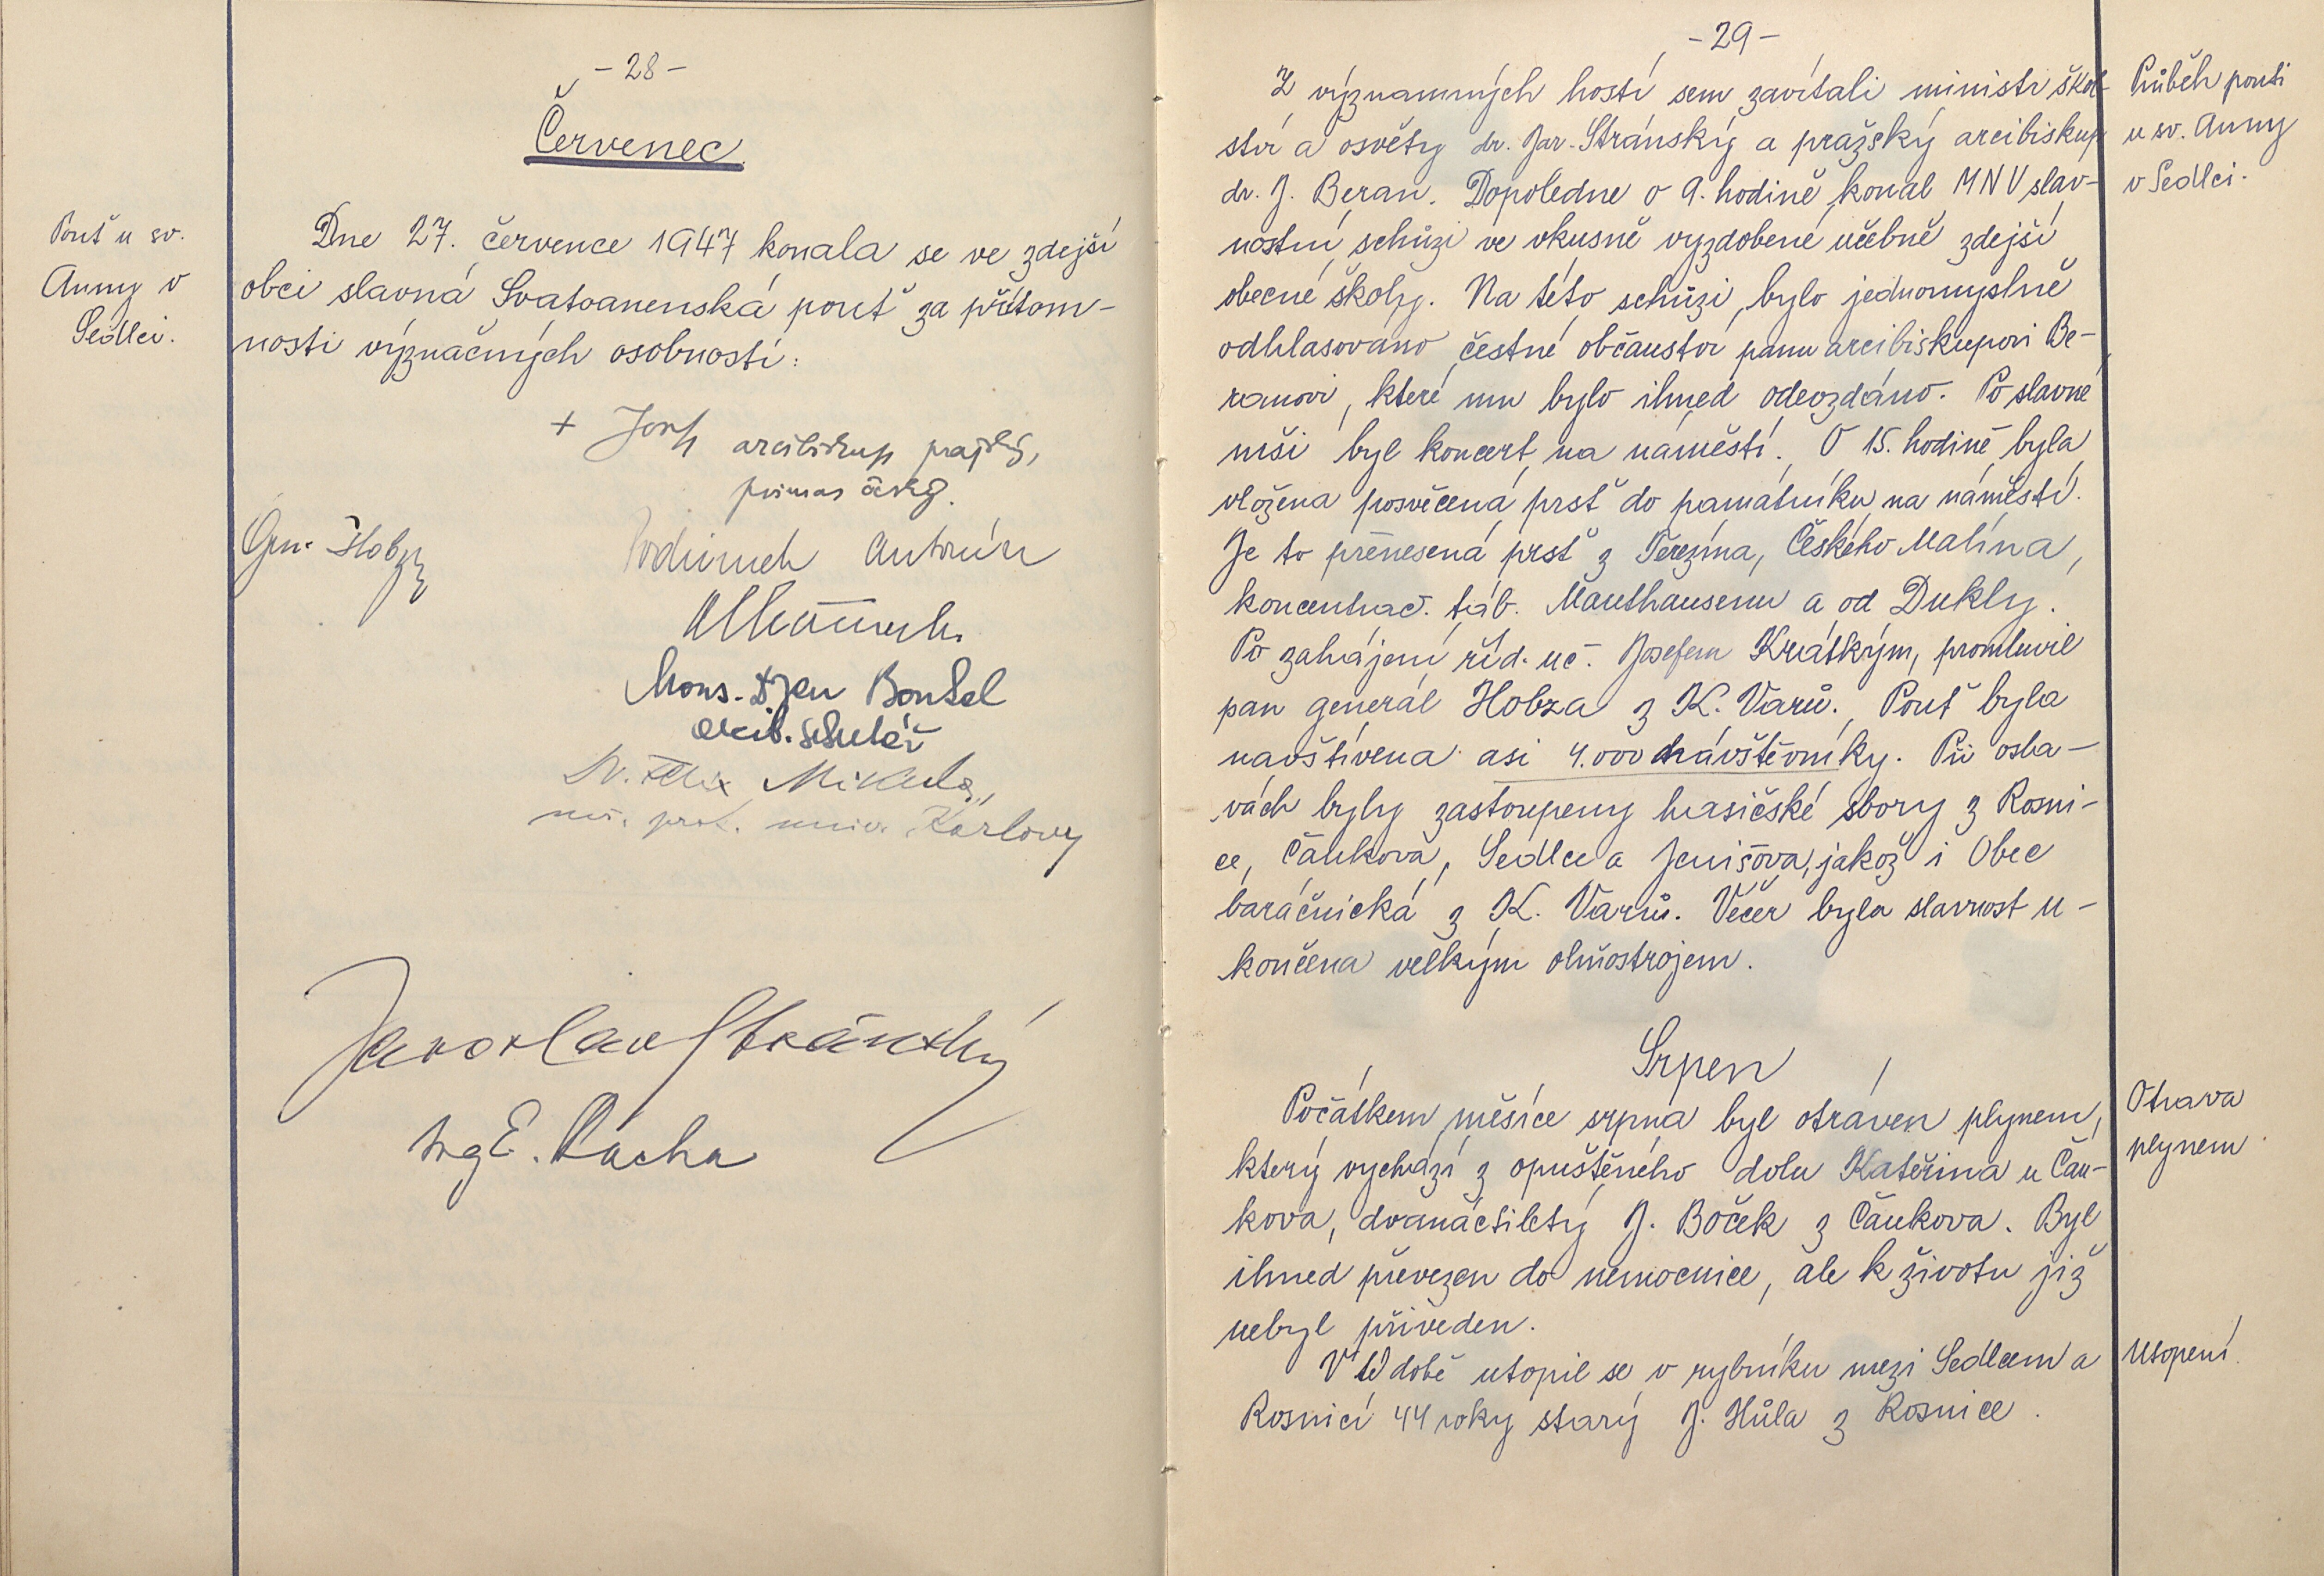 - 28 -
Červenec
Pouť u sv.
Anny v
Sedlci.
Dne 27. července 1947 konala se ve zdejší
obci slavná Svatoanenská pouť za přítom-
nosti význačných osobností:
+ Josef arcibiskup pražský,
primas český.
Gen. Hobza
Antonín
Mons. Dr Jan Boukal
arcib. sekretář
Dr. Felix Mikula,
univ. Karlovy
Jaroslav Stránský
Ing E. Rácha
- 29 -
Z významných hostí sem zavítali ministr škol-
ství a osvěty dr. Jar. Stránský a pražský arcibiskup
dr. J. Beran. Dopoledne o 9. hodině konal MNV slav-
nostní schůzi ve vkusně vyzdobené učebně zdejší
obecné školy. Na této schůzi bylo jednomyslně
odhlasováno čestné občanství panu arcibiskupovi Be-
ranovi, které mu bylo ihned odevzdáno. Po slavné
mši byl koncert na náměstí. O 15. hodině byla
vložena posvěcená prsť do památníku na náměstí.
Je to přenesená prsť z Terezína, Českého Malína,
koncentrač. táb. Mauthausenu a od Dukly.
Po zahájení říd. uč. Josefem Krátkým, promluvil
pan generál Hobza z K. Varů. Pouť byla
navštívena asi 4.000 návštěvníky. Při osla-
vách byly zastoupeny hasičské sbory z Rosni-
ce, Čankova, Sedlce a Jenišova, jakož i Obec
baráčnická z K. Varů. Večer byla slavnost u-
končena velkým ohňostrojem.
Průběh pouti
u sv. Anny
v Sedlci.
Srpen
Počátkem měsíce srpna byl otráven plynem,
který vychází z opuštěného dolu Kateřina u Čan-
kova, dvanáctiletý J. Boček z Čankova. Byl
ihned převezen do nemocnice, ale k životu již
nebyl přiveden.
Otrava
plynem.
V té době utopil se v rybníku mezi Sedlcem a
Rosnicí 44 roky starý J. Hůla z Rosnice.
Utopení.